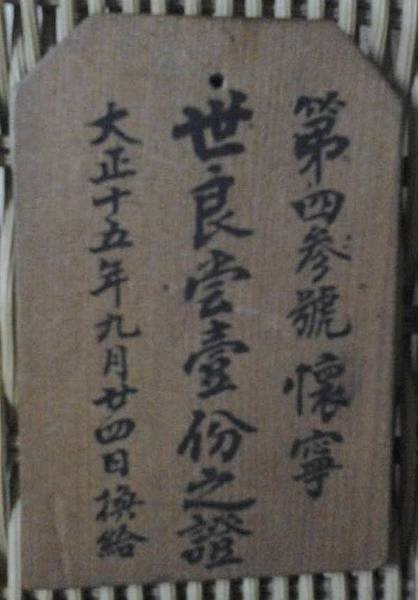 第四参號懷寧
世良尝壹份之證
大正十五年九月廿四日換給